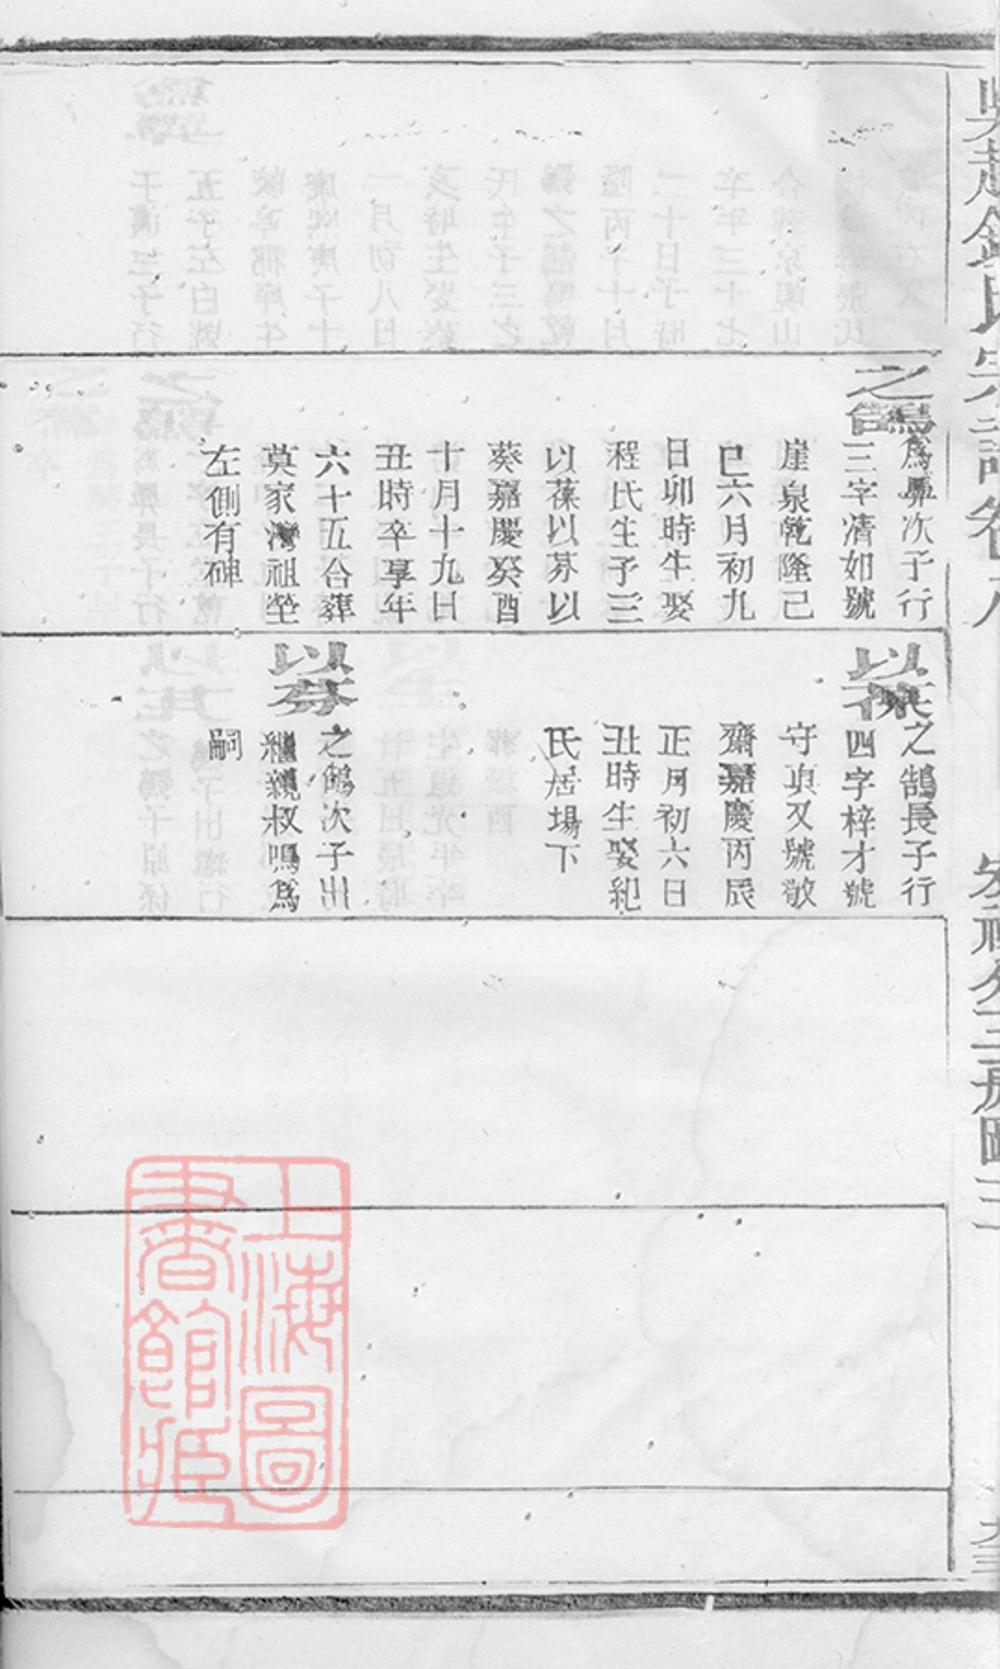 吳越錢氏宗譜卷八
之鵠
為鼻次子行
三字清如號
崖泉乾隆己
巳六月初九
日卯時生娶
程氏生子三
以葆以芬以
葵嘉慶癸酉
十月十九日
丑時卒享年
六十五合葬
莫家灣祖塋
左側有碑
以葆
之鵠長子行
四字梓才號
守貞又號敬
齋嘉慶丙辰
正月初六日
丑時生娶紀
氏居場下
以芬
之鵠次子出
繼親叔鳴為
嗣
上海圖
書館藏